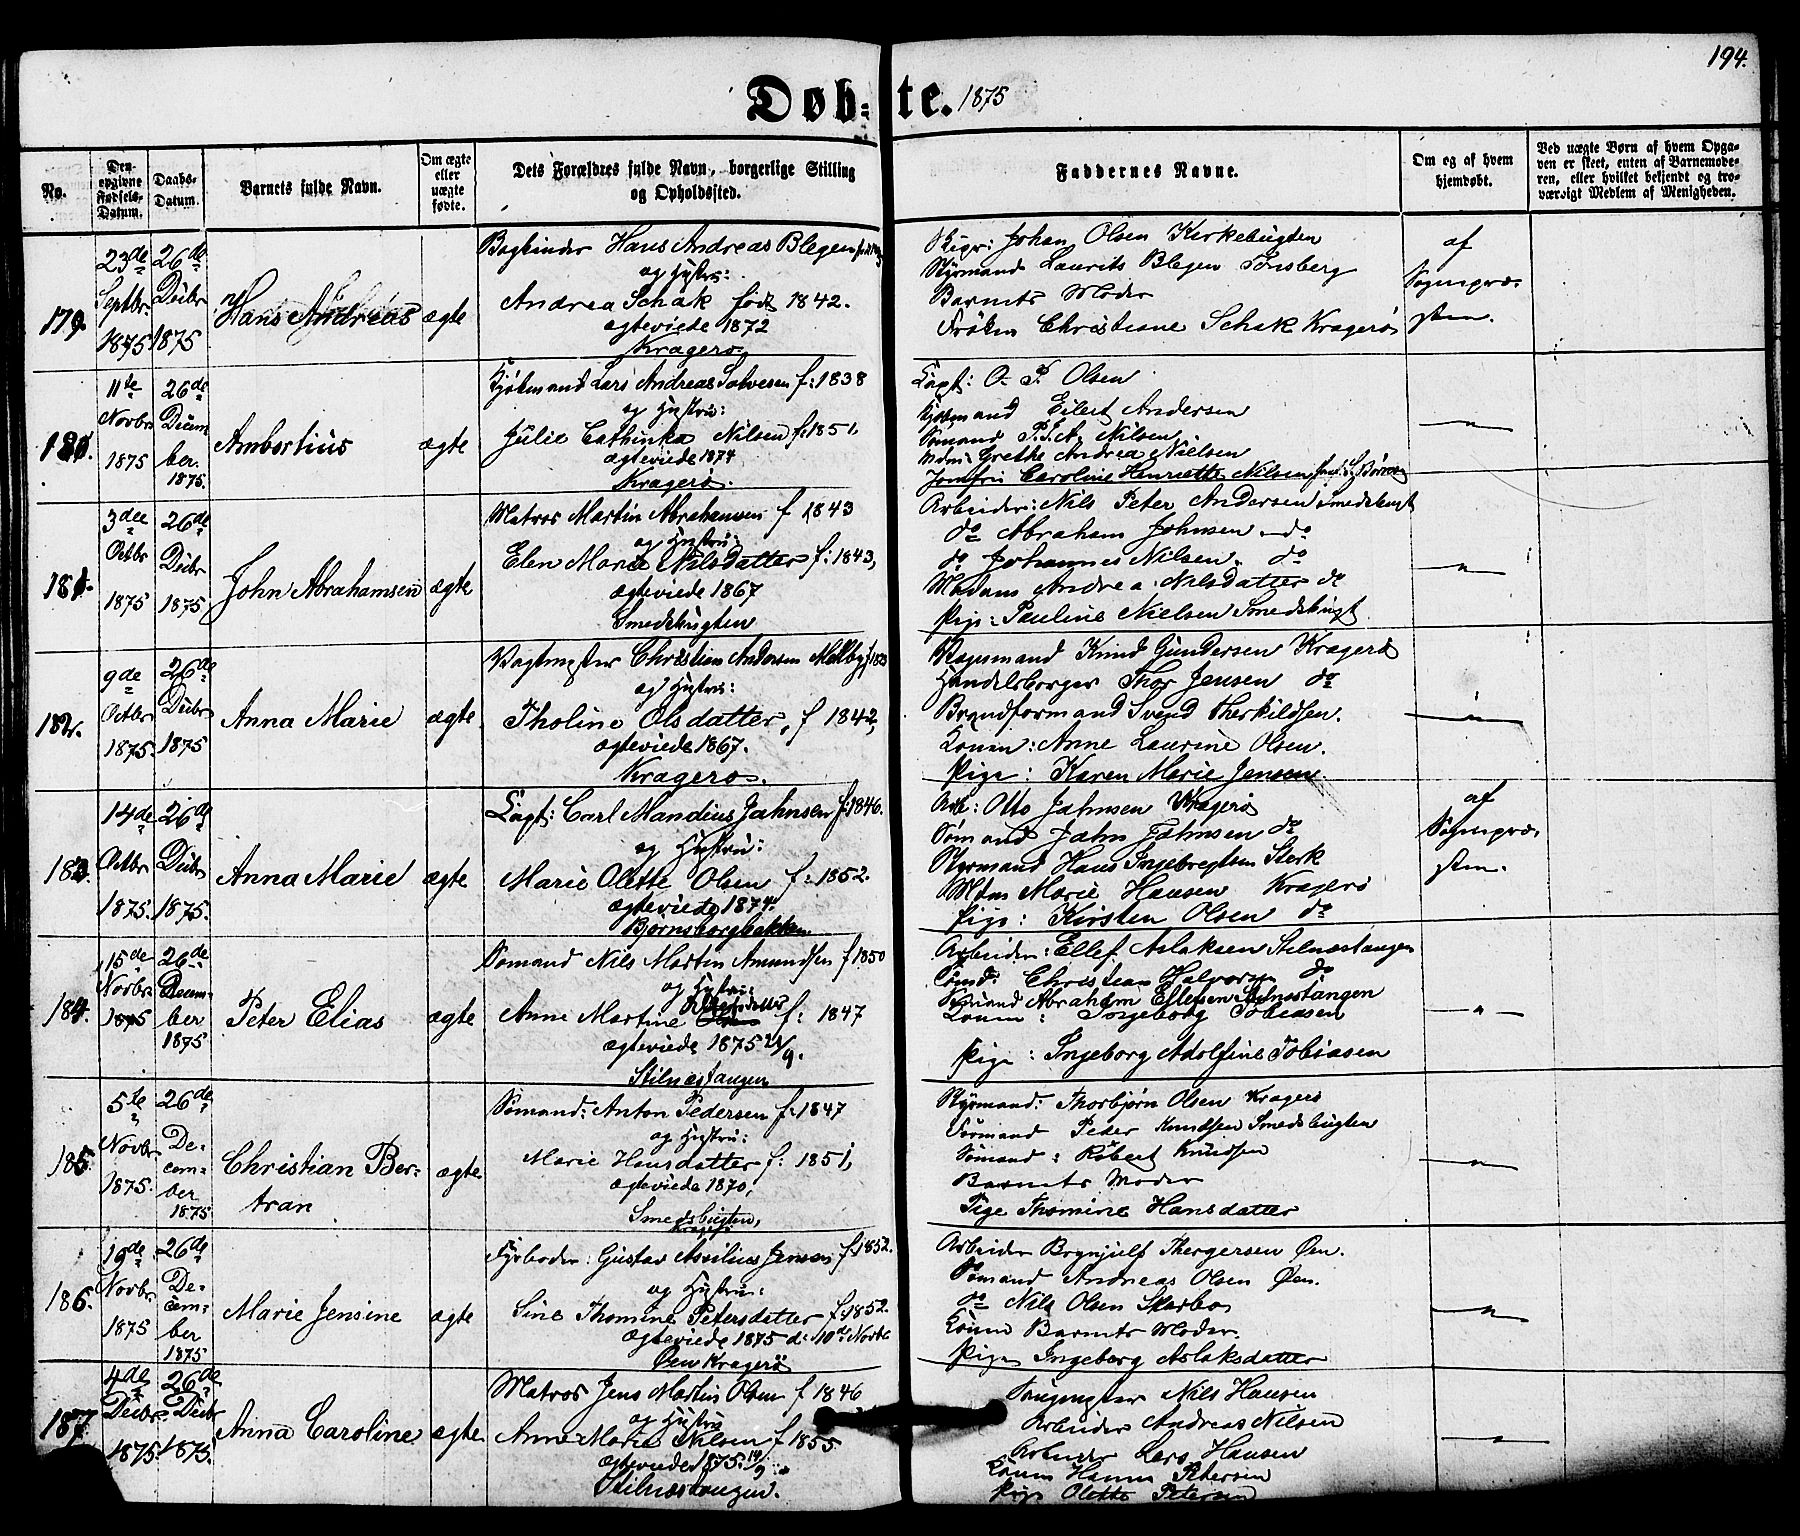 194.
Døb-te. 1875
No.
Den opgivne Fødsels-Datum.
Daabs-Datum.
Barnets fulde Navn.
Om ægte eller uægte fødte.
Dets Forældres fulde Navn, borgerlige Stilling og Opholdssted.
Faddernes Navne.
Om og af hvem hjemdøbt.
Ved uægte Børn af hvem Opgaven er skeet, enten af Barnemoderen, eller hvilket bekjendt og troværdigt Medlem af Menigheden.
179.
23de Septbr. 1875
26de Decbr 1875
Hans Andreas
ægte
Bogbinder Hans Andreas Blegen
og Hustru:
Andrea Schak född 1842.
ægteviede 1872
Kragerø
Skipr: Johan Olsen Kirkebugten
Styrmand Laurits Blegen Tønsberg
Barnets Moder
Frøken Christiane Schak Kragerø
af Sognepræsten.
180.
11te Novbr 1875
26de Decem ber. 1875.
Ambortius
ægte
Lars Andreas Solvesen f: 1838
og Hustru:
Julie Cathinka Nilsen f: 1851,
ægteviede 1874
Kragerø.
Capt: O. P. Olsen
Eilert Andersen
Sømand P.T.A. Nilsen
Mdm: Grethe Andrea Nielsen
Jomfru Caroline Henriette Nilsen
— " —
181.
3die Octbr 1875
26de Decbr 1875
John Abrahamsen
ægte
Matros Martin Abrahamsen f 1843
og Hustru:
Elen Marie Nilsdatter f: 1843,
ægteviede 1867
Smedsbugten
Arbeider: Nils Peter Andersen Smedsbugt
do Abraham Johnsen do
do Johannes Nilsen do
Madam Andrea Nilsdatter do
Pige: Pauline Nielsen Smedsbugt
— " —
182.
9de Octbr 1875
26de Decbr 1875
Anna Marie
ægte
Vagtmester Christian Andersen Melby
og Hustru:
Tholine Olsdatter, f 1842,
ægteviede 1867.
Kragerø.
Knud Gundersen Kragerø
Handelsborger Thor Jensen do
Brandformand Svend Therkildsen.
Konen: Anne Laurine Olsen.
Pige: Karen Marie Jensen.
— " —
183.
14de Octbr 1875.
26de Decbr 1875.
Anna Marie
ægte
Capt: Carl Mandius Jahnsen f: 1846.
og Hustru:
Marie Olette Olsen f: 1852.
ægteviede 1874.
Bjørnsborgbakken
Arb: Otto Jahnsen Kragerø
Sømand Jahn Jahnsen do
Styrmand Hans Ingebregtsen Sterk
Mdm Marie Hansen Kragerø
Pige: Kirsten Olsen do
af Sognepræsten.
184.
15de Novbr 1875
26de Decem ber 1875
Peter Elias
ægte
Sømand Nils Martin Amundsen f 1850
og Hustru:
Anne Martine f: 1847
ægteviede 1875 21/9.
Stilnæstangen
Arbeider: Ellef Aslaksen Stilnæstangen
Sømd: Christian Halvorsen do
Sømand Abraham Ellefsen Stilnæstangen
Konen: Ingeborg Tobiasen
Pige: Ingeborg Adolfine Tobiasen
— " —
185.
5te Novbr 1875.
26de De- cem- ber 1875
Christian Ber-
tran
ægte
Sømand: Anton Pedersen f: 1847
og Hustru:
Marie Hansdatter f: 1851,
ægteviede 1870,
Smedsbugten,
Kragerø
Styrmand: Thorbjørn Olsen Kragerø
Sømand Peter Knudsen Smedsbugten
Sømand: Robert Knudsen
Barnets Moder
Pige Thomine Hansdatter
— " —
186.
19de Novbr. 1875
26de De- cem- ber 1875
Marie Jensine
ægte
Fyrbøder: Gustav Assilius Jensen f: 1852.
og Hustru:
Sine Thomine Petersdatter f: 1852.
ægteviede 1875 d: 10de Novbr
Øen Kragerø
Arbeider Brynjulf Thergersen Øen.
Sømand Andreas Olsen Øen.
do Nils Olsen Skarbo
Konen Barnets Moder.
Pige Ingeborg Aslaksdatter
— " —
187.
4de Decbr 1875
26de Decbr 1875.
Anna Caroline
ægte
Matros Jens Martin Olsen f 1846
og Hustru
Anne Marie Nilsen f 1855
ægteviede 1875. 19/9
Stilnæstangen.
Nils Hansen
Arbeider Andreas Nilsen
Arbeider Lars Hansen
Konen Hanna Petersen
Pige Olette Petersen
— " —